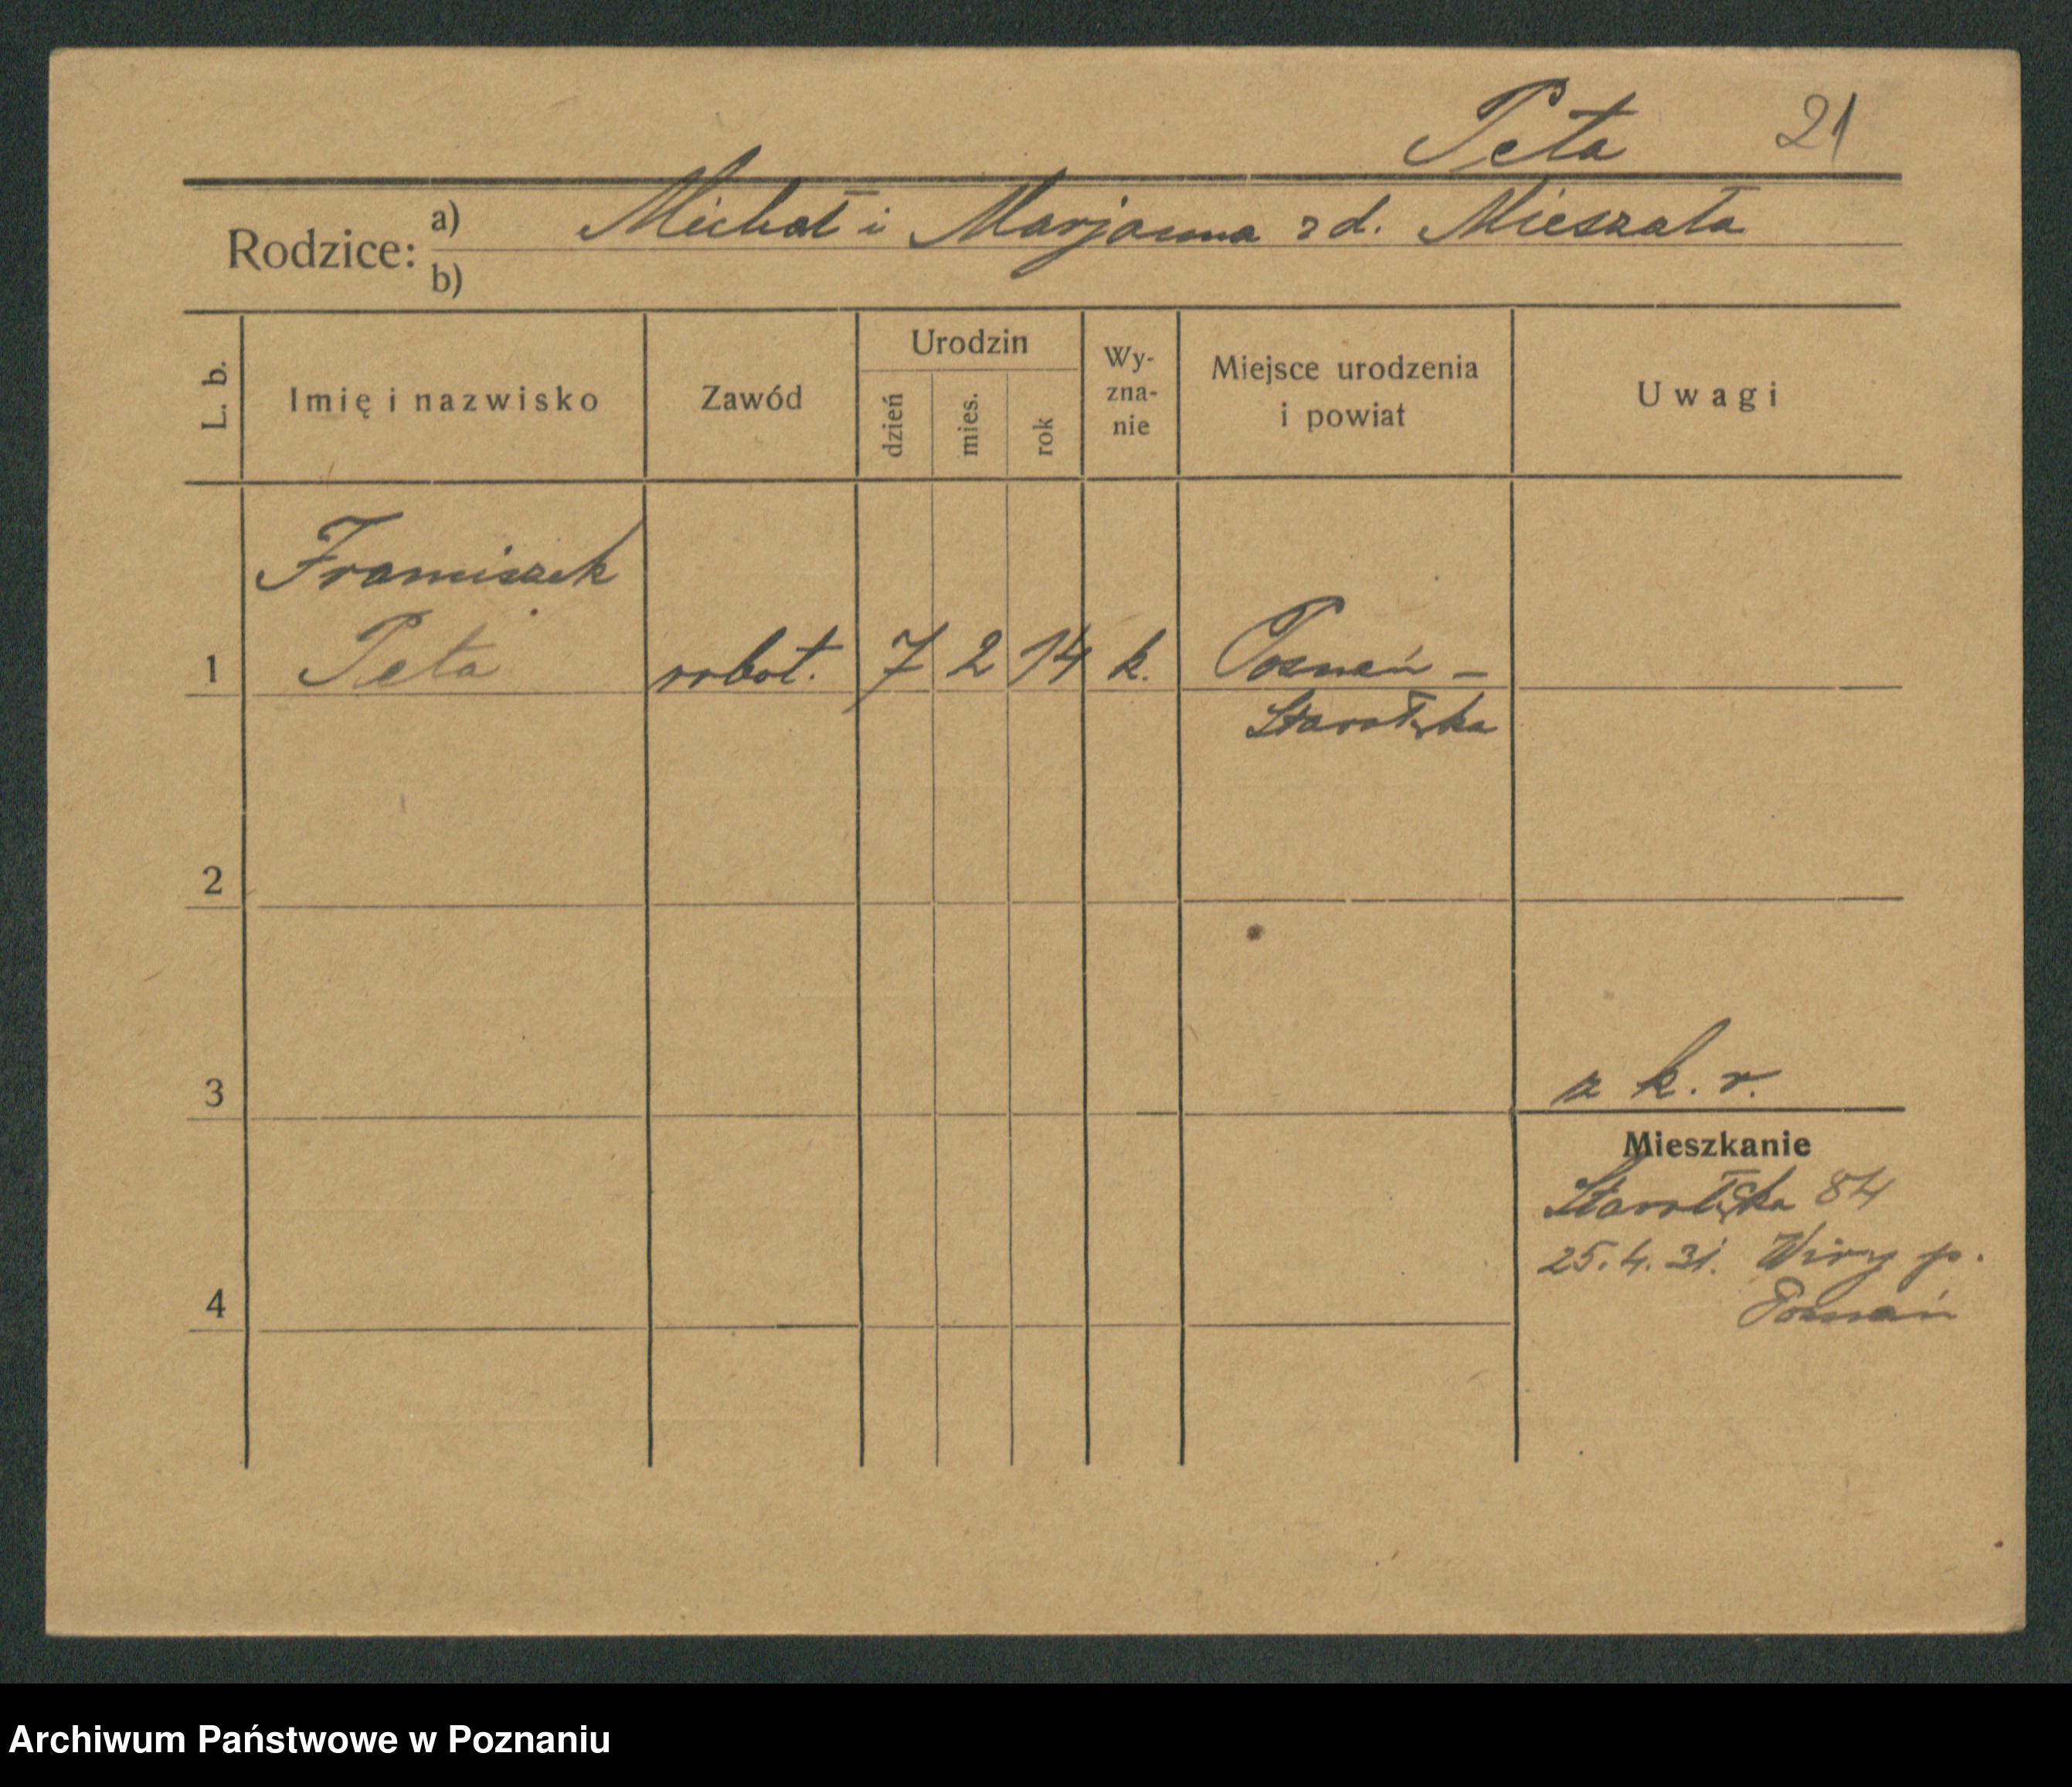 Peta 21
Rodzice: a) Michał i Marjanna zd. Mieszała
b)
L. b. Imię i nazwisko Zawód Urodzin dzień mies. rok Wy-zna-nie Miejsce urodzenia i powiat Uwagi
Franciszek
1 Peta robot. 7 2 14 k. Poznań -
Starołęka
2
3 z k. r.
Mieszkanie
Starołęka 84
25.4.31. Wiry p.
Poznań
4
Archiwum Państwowe w Poznaniu